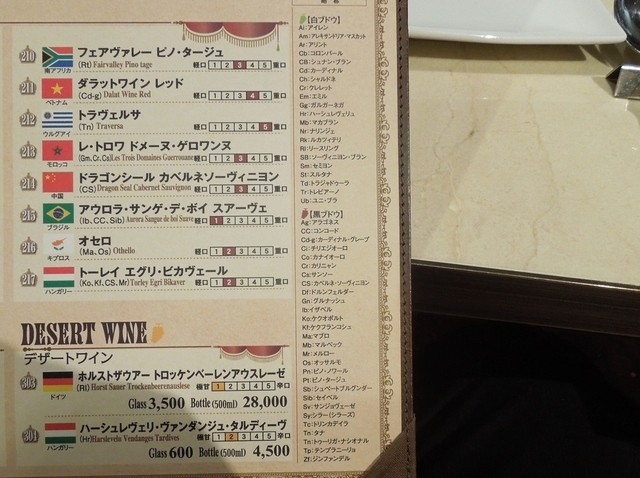 210
フェアヴァレー ピノ・タージュ
(Rt) Fairvalley Pino tage
軽口 1 2 3 4 5 重口
南アフリカ
211
ダラットワイン レッド
(Cd-g) Dalat Wine Red
軽口 1 2 3 4 5 重口
ベトナム
212
トラヴェルサ
(Tn) Traversa
軽口 1 2 3 4 5 重口
ウルグアイ
213
レ・トロワ ドメーヌ・ゲロワンヌ
(Gm, Cr, Cs) Les Trois Domaines Guerrouane
軽口 1 2 3 4 5 重口
モロッコ
214
ドラゴンシール カベルネソーヴィニヨン
(CS) Dragon Seal Cabernet Sauvignon
軽口 1 2 3 4 5 重口
中国
215
アウロラ・サンゲ・デ・ボイ スアーヴェ
(Ib, CC, Sib) Aurora Sangue de boi Suave
軽口 1 2 3 4 5 重口
ブラジル
216
オセロ
(Ma, Os) Othello
軽口 1 2 3 4 5 重口
キプロス
217
トーレイ エグリ・ビカヴェール
(Ko, Kf, CS, Mr) Torley Egri Bikaver
軽口 1 2 3 4 5 重口
ハンガリー
DESERT WINE
デザートワイン
303
ホルストザウアー トロッケンベーレンアウスレーゼ
(Rl) Horst Sauer Trockenbeerenauslese
極甘 1 2 3 4 5 辛口
ドイツ
Glass 3,500 Bottle (500ml) 28,000
304
ハーシュレヴェリ・ヴァンダンジュ・タルディーヴ
(Hr) Harslevelu Vendanges Tardives
極甘 1 2 3 4 5 辛口
ハンガリー
Glass 600 Bottle (500ml) 4,500
【白ブドウ】
Ai:アイレン
Am:アレキサンドリア・マスカット
Ar:アリント
Cb:コロンバール
CB:シュナン・ブラン
Cd:カーディナル
Ch:シャルドネ
Cr:クレレット
Em:エミル
Gg:ガルガーネガ
Hr:ハーシュレヴェリュ
Mb:マカブラン
Nr:ナリンジェ
Rk:ルカツィテリ
Rl:リースリング
SB:ソーヴィニヨン・ブラン
Sm:セミヨン
St:スルタナ
Td:トラジャドゥーラ
Tr:トレビアーノ
Ub:ユニ・ブラ
【黒ブドウ】
Ag:アラゴネス
CC:コンコード
Cd-g:カーディナル・グレープ
Ci:チリエジオーロ
Co:カナイオーロ
Cr:カリニャン
Cs:サンソー
CS:カベルネ・ソーヴィニヨン
Df:ドルンフェルダー
Gn:グルナッシュ
Ib:イザベル
Ko:ケクオポルト
Kf:ケクフランコシュ
Ma:マブロ
Mb:マルベック
Mr:メルロー
Os:オッサルモ
Pn:ピノ・ノワール
Pt:ピノ・タージュ
Sb:シュペートブルグンダー
Sib:セイベル
Sv:サンジョヴェーゼ
Sy:シラー(シラーズ)
Tc:トリンカデイラ
Tn:タナ
Tn:トゥーリガ・ナシオナル
Tp:テンプラニーリョ
Zf:ジンファンデル